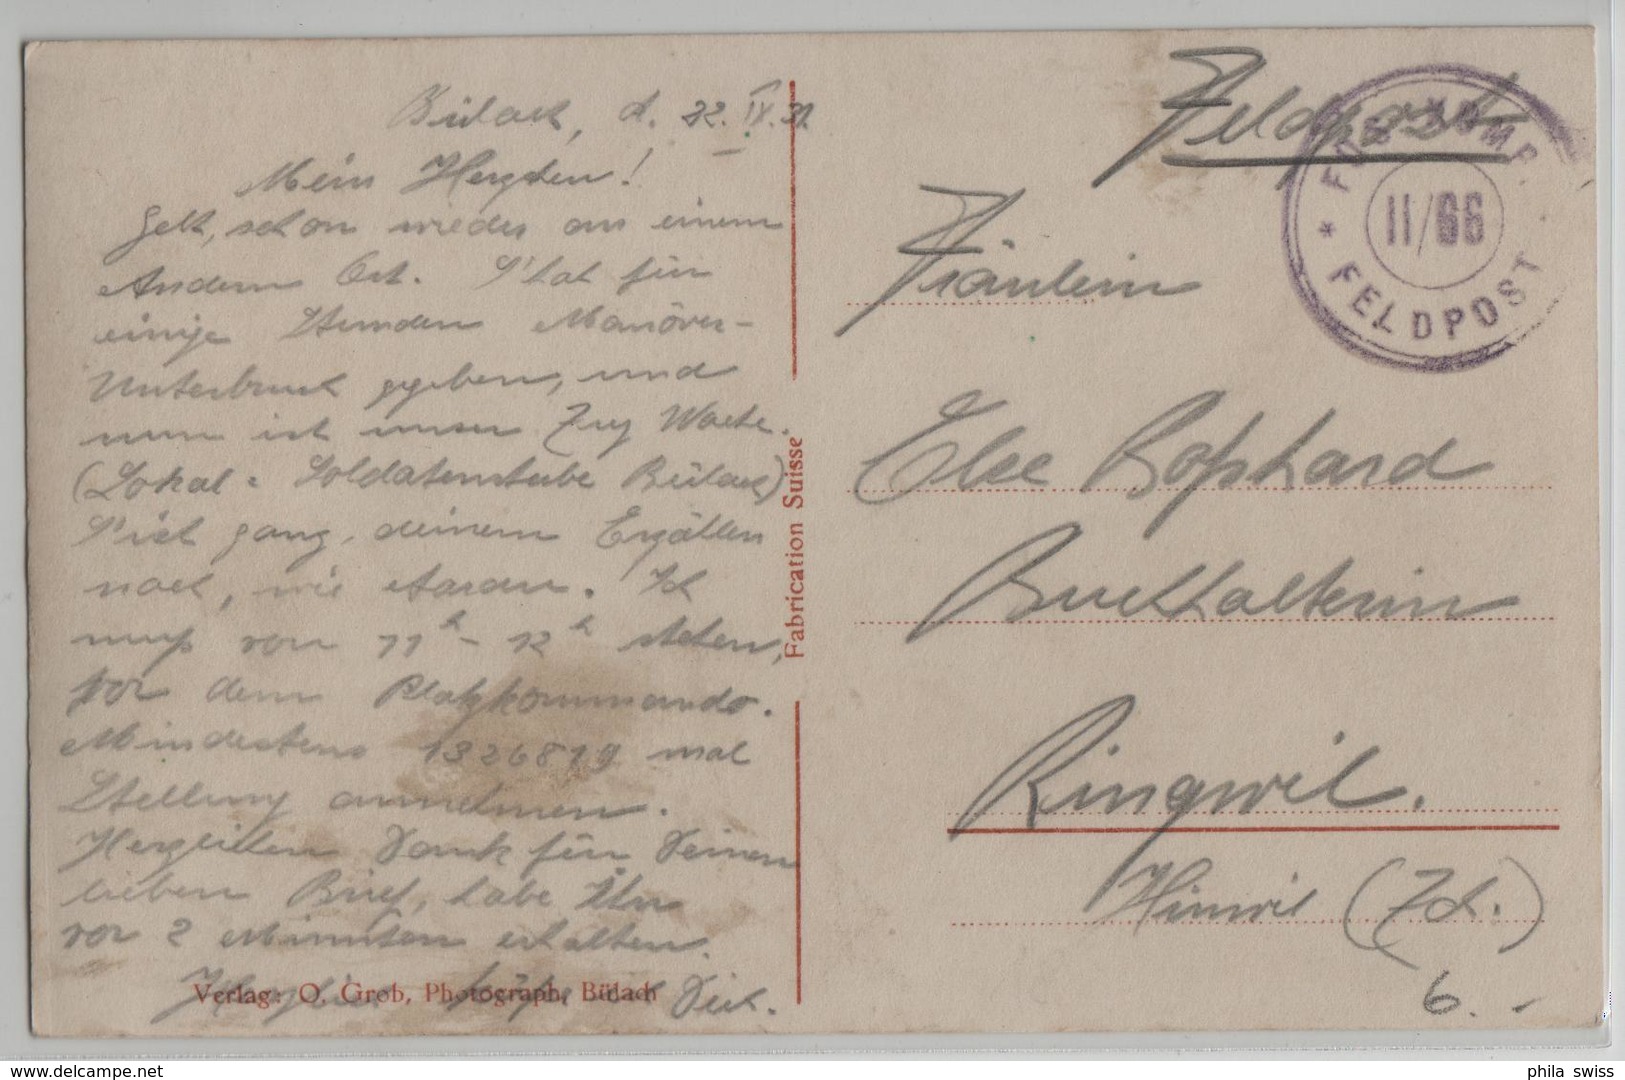 Bülach, d. 22. IV. 31.
Mein Herzchen!
Gelt, schon wieder an einem
Andern Ort. S'hat für
einige Stunden Manöver-
Unterbruch gegeben, und
nun ist unser Zug Wache.
(Lokal: Soldatenstube Bülach)
S'ist ganz, deinem Erzählen
nach, wie Aarau. Ich
muß von 11 h - 12 h stehen,
vor dem Platzkommando.
Mindestens 1326819 mal
Stellung annehmen.
Herzlichen Dank für Deinen
lieben Brief, habe Ihn
vor 2 Minuten erhalten.
Dich.
Verlag: O. Grob, Photograph, Bülach
Fabrication Suisse
Feldpost
FÜS. KOMP.
II/66
* FELDPOST
Fräulein
Else Boßhard
Buchhalterin
Ringwil.
Hinwil (Zch.)
6.-
phila swiss